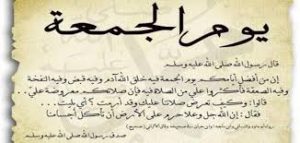 يوم الجمعة
قال رسول الله صلى الله عليه وسلم
إن من أفضل أيامكم يوم الجمعة فيه خلق الله آدم وفيه قبض وفيه النفخة
وفيه الصعقة فأكثروا علي من الصلاة فيه فإن صلاتكم معروضة علي
قالوا: وكيف تعرض صلاتنا عليك وقد أرمت؟ أي بليت
فقال: إن الله جل وعلا حرم على الأرض أن تأكل أجسامنا
صدق رسول الله صلى الله عليه وسلم